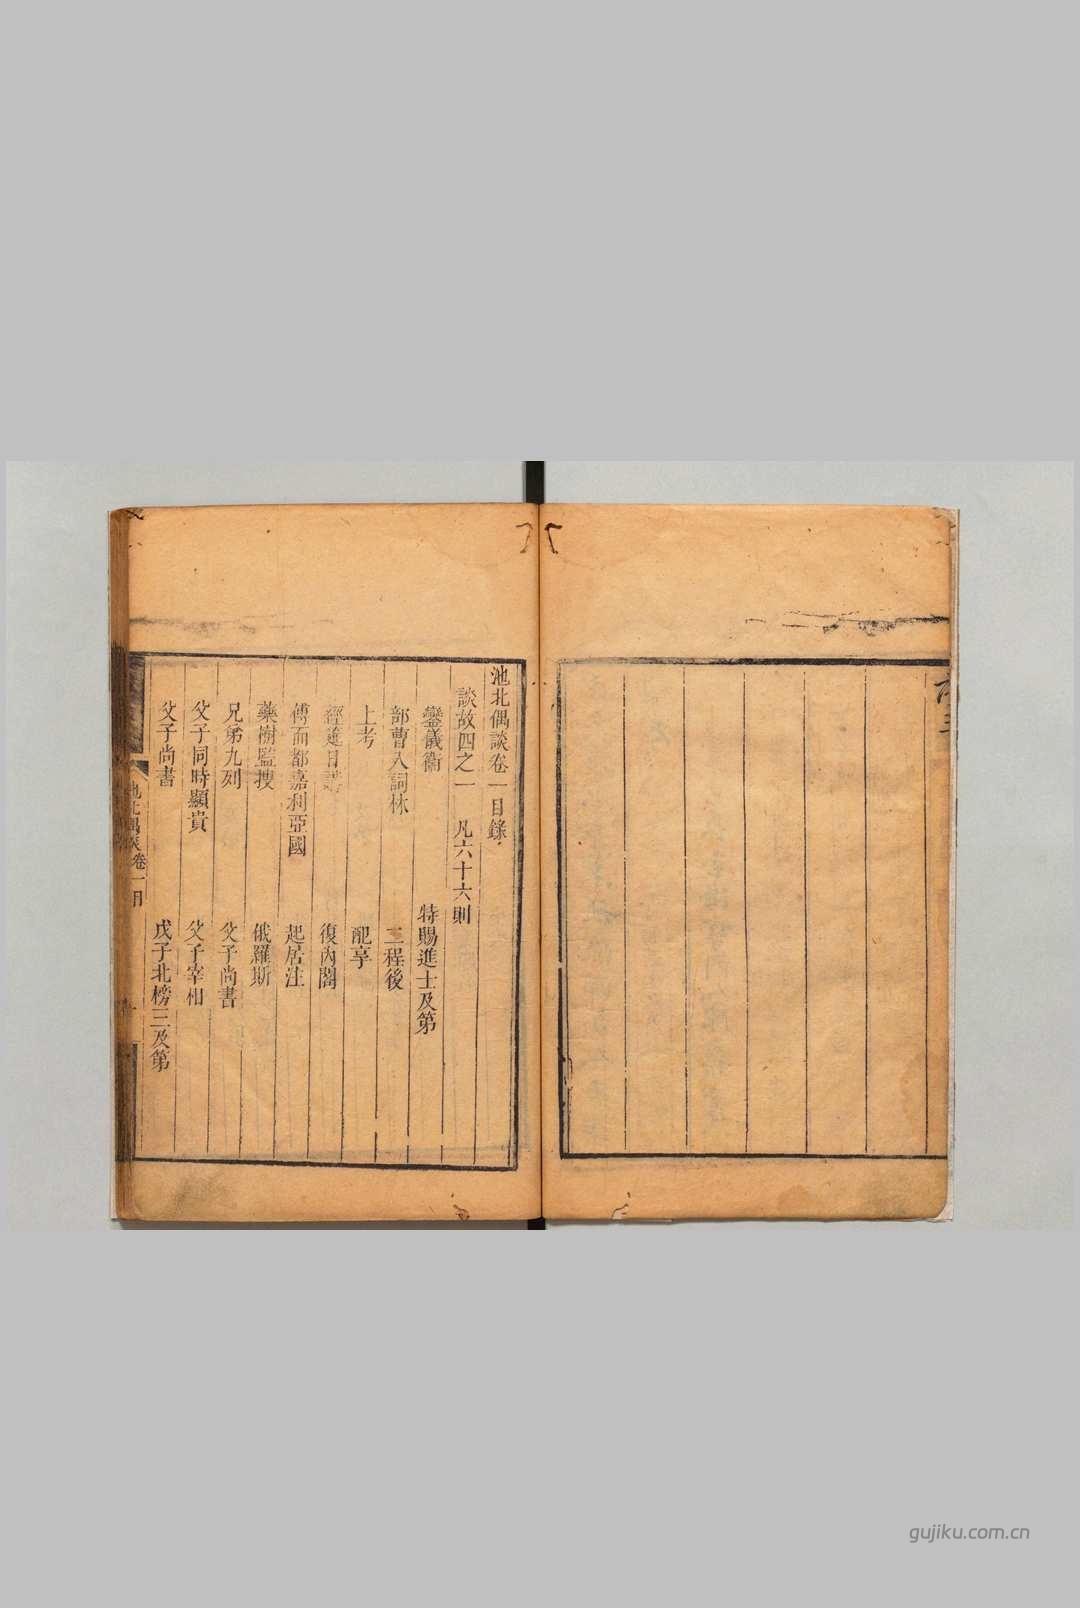 池北偶談卷一目錄
談故四之一 凡六十六則
鑾儀衞 特賜進士及第
部曹入詞林 二程後
上考 配享
經筵日講 復內閣
傅而都嘉利亞國 起居注
藥樹監搜 俄羅斯
兄弟九列 父子尚書
父子同時顯貴 父子宰相
父子尚書 戊子北榜三及第
池北偶談卷一目
gujiku.com.cn